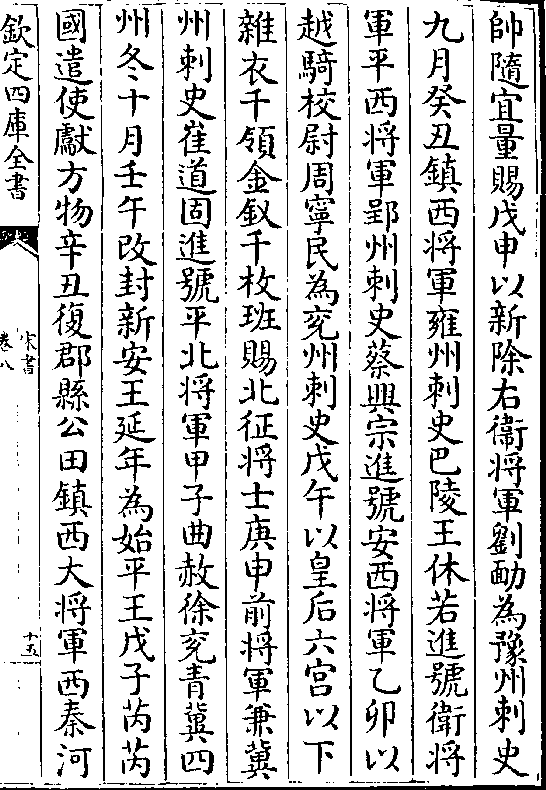 帥隨宜量賜戊申以新除右衞將軍劉勔為豫州刺史
九月癸丑鎮西將軍雍州刺史巴陵王休若進號衛將
軍平西將軍郢州刺史蔡興宗進號安西將軍乙卯以
越騎校尉周寧民為兖州刺史戊午以皇后六宮以下
雜衣千領金釵千枚班賜北征將士庚申前將軍兼冀
州刺史崔道固進號平北將軍甲子曲赦徐兖青冀四
州冬十月壬午改封新安王延年為始平王戊子芮芮
國遣使獻方物辛丑復郡縣公田鎮西大將軍西秦河
欽定四庫全書
宋書
卷八
十五